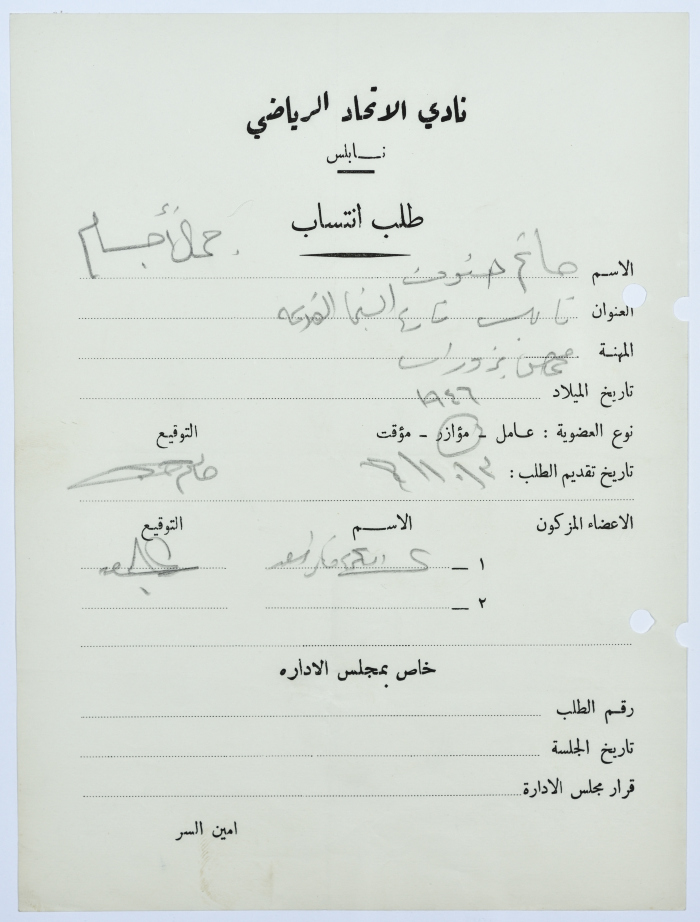 نادي الاتحاد الرياضي
نابلس
طلب انتساب
كمال أجسام
الاسم حاتم
العنوان نابلس شارع السينما القديمة
المهنة محمص بزورات
تاريخ الميلاد ١٩٤٦
نوع العضوية : عامل - مؤازر - مؤقت التوقيع
تاريخ تقديم الطلب :
الاعضاء المزكون الاسم التوقيع
١ —
٢ —
خاص بمجلس الاداره
رقم الطلب
تاريخ الجلسة
قرار مجلس الادارة
امين السر